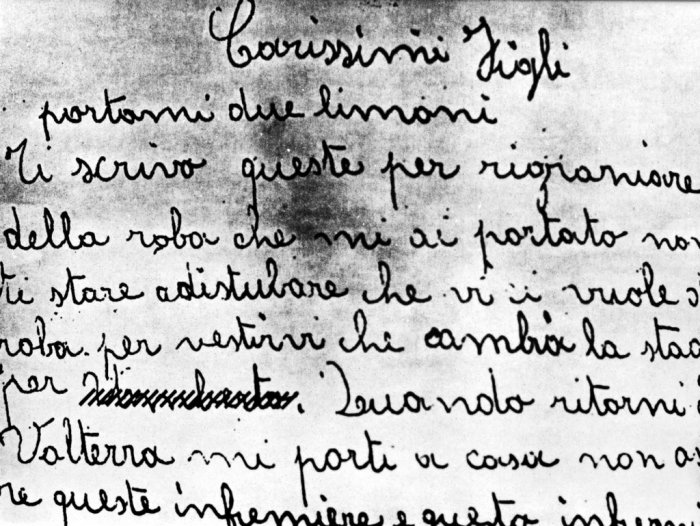 Carissimi Figli
portami due limoni
Ti scrivo queste per rigraniare
della roba che mi ai portato non
ti stare adistubare che vi ci vuole
roba per vestirvi che cambia la stag
per . Quando ritorni
Valterra mi porti a casa non a
re queste infremiere e questo infer